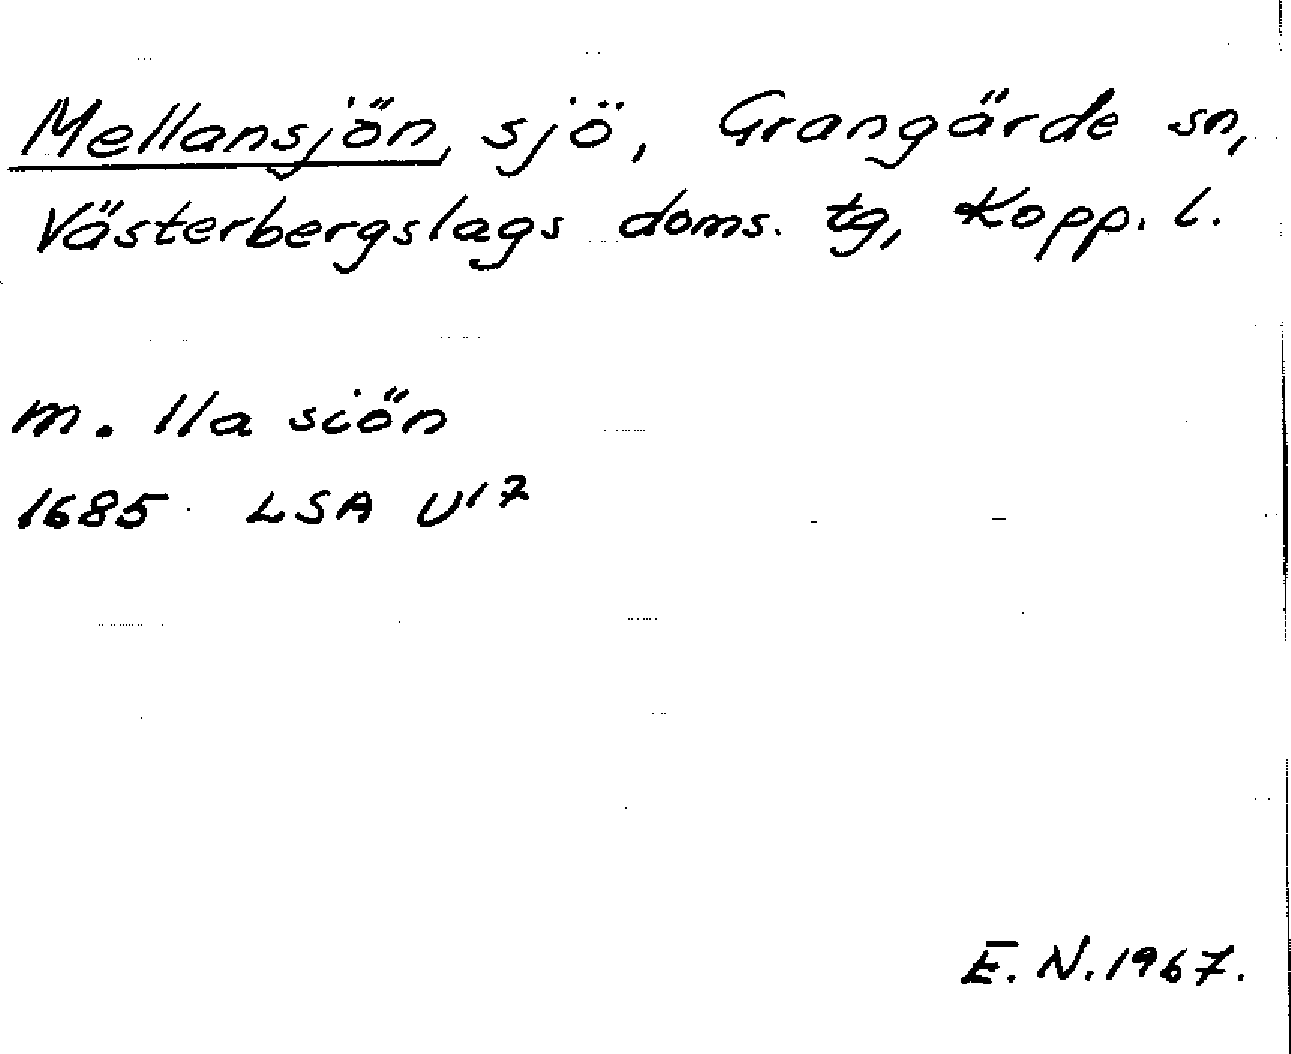 Mellansjön, sjö, Grangärde sn,
Västerbergslags doms. tg, Kopp. l.
m. lla siön
1685 LSA U17
E. N. 1967.